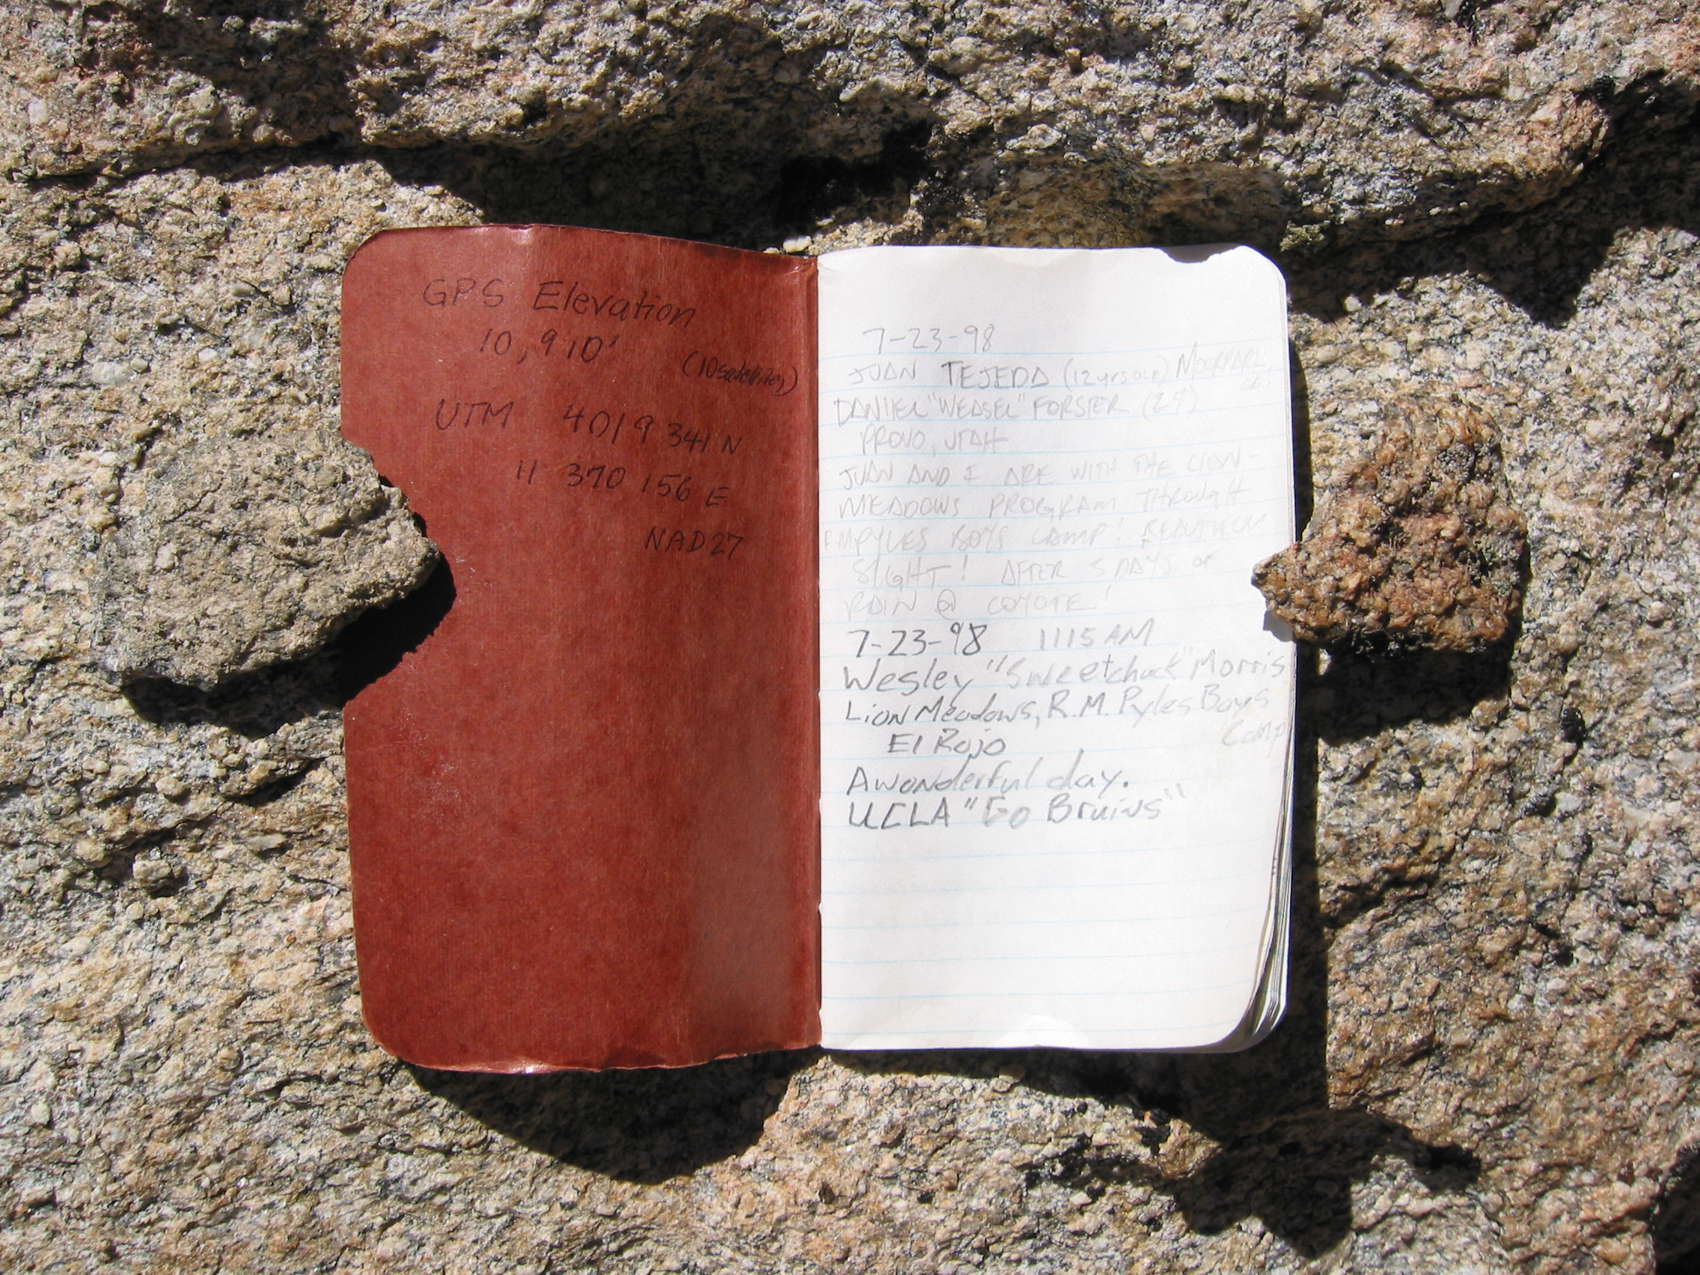 GPS Elevation
10,910'
(10 satellites)
UTM 4019 341 N
11 370 156 E
NAD27
7-23-98
JUAN TEJEDA (12 yrs old) MOORPARK,
DANIEL "WEASEL" FORSTER (24)
PROVO, UTAH
JUAN AND I ARE WITH THE LION-
MEADOWS PROGRAM THROUGH
PYLES BOYS CAMP! BEAUTIFUL
SIGHT! AFTER 5 DAYS OF
RAIN @ COYOTE!
7-23-98 1115 AM
Wesley "Sweetchuck" Morris
Lion Meadows, R.M. Pyles Boys
Camp
El Rojo
A wonderful day.
UCLA "Go Bruins"